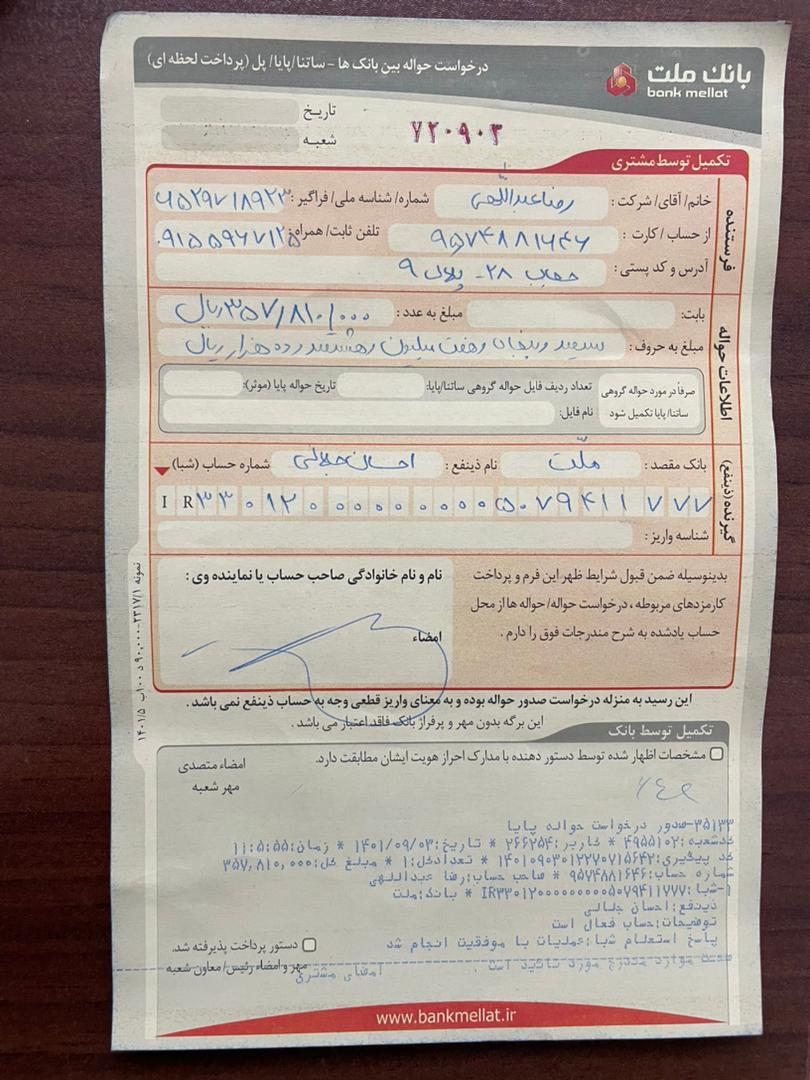 درخواست حواله بین بانک ها - ساتنا/پایا/ پل (پرداخت لحظه ای)
بانک ملت
bank mellat
تاریخ
شعبه
۷۲۰۹۰۳
تکمیل توسط مشتری
فرستنده
خانم/ آقای/ شرکت : رضا عبداللهی شماره/ شناسه ملی/ فراگیر :
از حساب/ کارت : ۹۵۷۴۸۸۱۶۴۶ تلفن ثابت/ همراه : ۰۹۱۵۵۹۶۷۱۲۵
آدرس و کد پستی : حجاب ۲۸- پلاک ۹
اطلاعات حواله
بابت: مبلغ به عدد : ۳۵۷/۸۱۰/۰۰۰ ریال
مبلغ به حروف : سیصد و پنجاه و هفت میلیون و هشتصد و ده هزار ریال
صرفاً در مورد حواله گروهی ساتنا/ پایا تکمیل شود
تعداد ردیف فایل حواله گروهی ساتنا/پایا: تاریخ حواله پایا (موثر):
نام فایل:
گیرنده (ذینفع)
بانک مقصد : ملت نام ذینفع : احسان جلالی شماره حساب (شبا)
IR ۳۳۰۱۲۰۰۰۰۰۰۰۰۰۰۵۰۷۹۴۱۱۷۷۷
شناسه واریز :
بدینوسیله ضمن قبول شرایط ظهر این فرم و پرداخت
کارمزدهای مربوطه ، درخواست حواله/ حواله ها از محل
حساب یادشده به شرح مندرجات فوق را دارم .
نام و نام خانوادگی صاحب حساب یا نماینده وی :
امضاء
این رسید به منزله درخواست صدور حواله بوده و به معنای واریز قطعی وجه به حساب ذینفع نمی باشد .
این برگه بدون مهر و پرفراژ بانک فاقد اعتبار می باشد .
تکمیل توسط بانک
مشخصات اظهار شده توسط دستور دهنده با مدارک احراز هویت ایشان مطابقت دارد.
امضاء متصدی
مهر شعبه
۳۵۱۳۳-صدور درخواست حواله پایا
کدشعبه:۴۹۵۵۱۰۲ * کاربر:۲۶۶۲۵۴ * تاریخ:۱۴۰۱/۰۹/۰۳ * زمان:۱۱:۵:۵۵
کد پیگیری:۱۴۰۱۰۹۰۳۰۱۲۲۷۰۷۱۵۶۴۲ * تعدادکل:۱ * مبلغ کل:۳۵۷,۸۱۰,۰۰۰
شماره حساب:۹۵۷۴۸۸۱۶۴۶ * صاحب حساب:رضا عبداللهی
۱-شبا:IR۳۳۰۱۲۰۰۰۰۰۰۰۰۰۰۵۰۷۹۴۱۱۷۷۷ * بانک:ملت
ذینفع:احسان جلالی
توضیحات:حساب فعال است
پاسخ استعلام شبا:عملیات با موفقیت انجام شد
صحت موارد مندرج مورد تائید است . امضای مشتری
دستور پرداخت پذیرفته شد.
مهر و امضاء رئیس/ معاون شعبه
www.bankmellat.ir
نمونه ۲۳۱۷/۱-۹۰,۰۰۰ د ۱۰۰ب ۱۴۰۱/۵